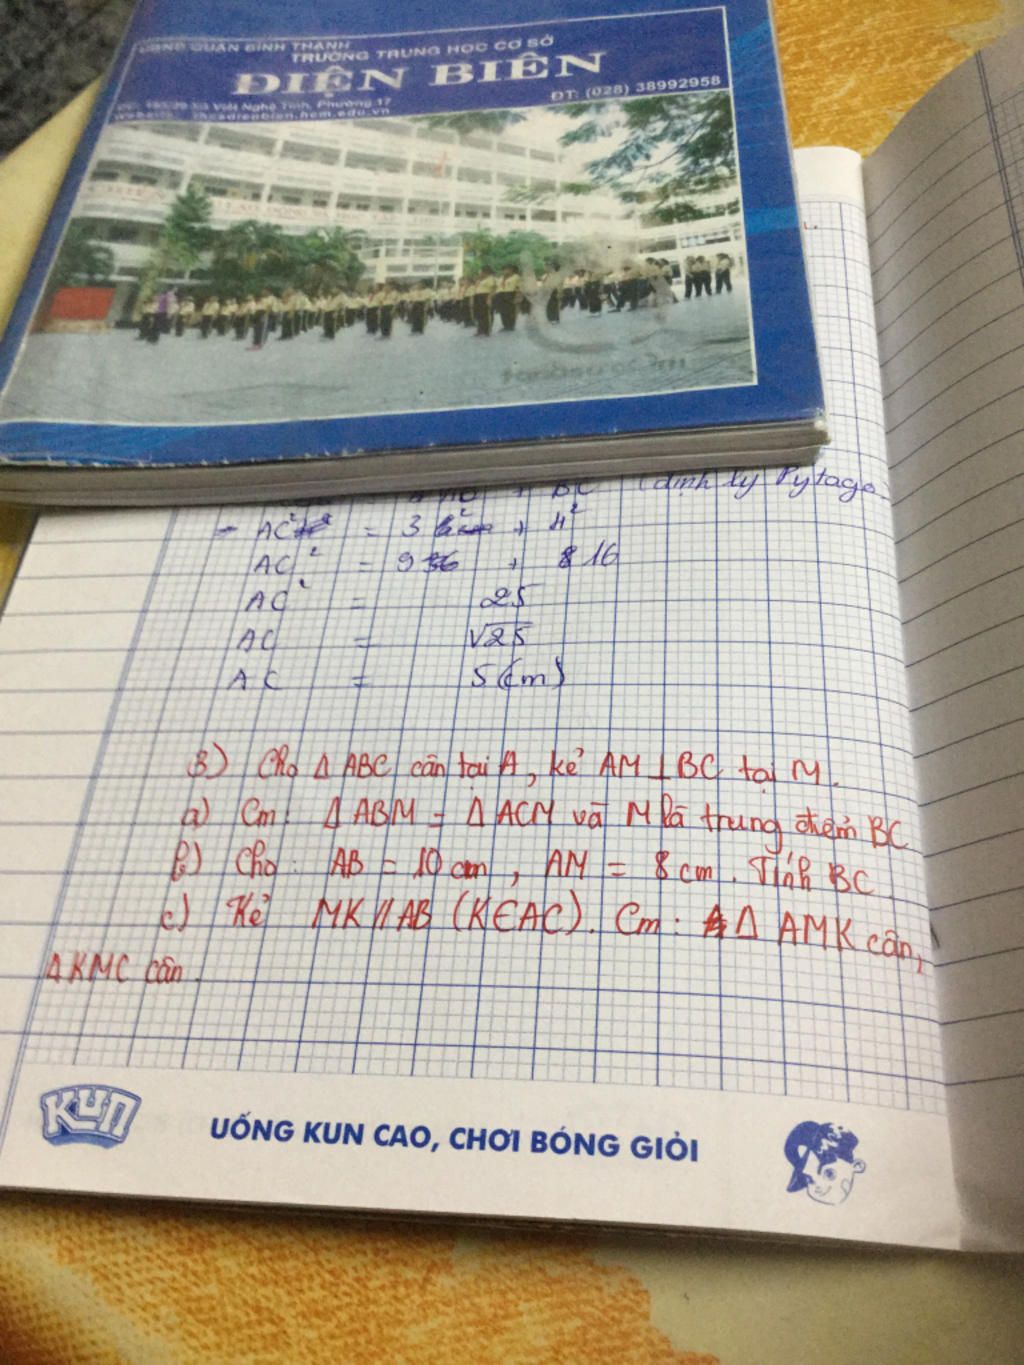 UBND QUẬN BÌNH THẠNH
TRƯỜNG TRUNG HỌC CƠ SỞ
ĐIỆN BIÊN
Việt Nghệ Tĩnh, Phường 17
ĐT: (028) 38992958
thcsdienbien.hcm.edu.vn
+ BC (định lý Pytago
AC² = 3² + 4²
AC² = 9 + 16
AC² = 25
AC = √25
AC = 5 (cm)
3) Cho Δ ABC cân tại A, kẻ AM ⊥ BC tại M.
a) Cm: Δ ABM = Δ ACM và M là trung điểm BC
b) Cho: AB = 10 cm, AM = 8 cm. Tính BC
c) Kẻ MK // AB (K∈AC). Cm: Δ AMK cân,
Δ KMC cân.
KUN
UỐNG KUN CAO, CHƠI BÓNG GIỎI